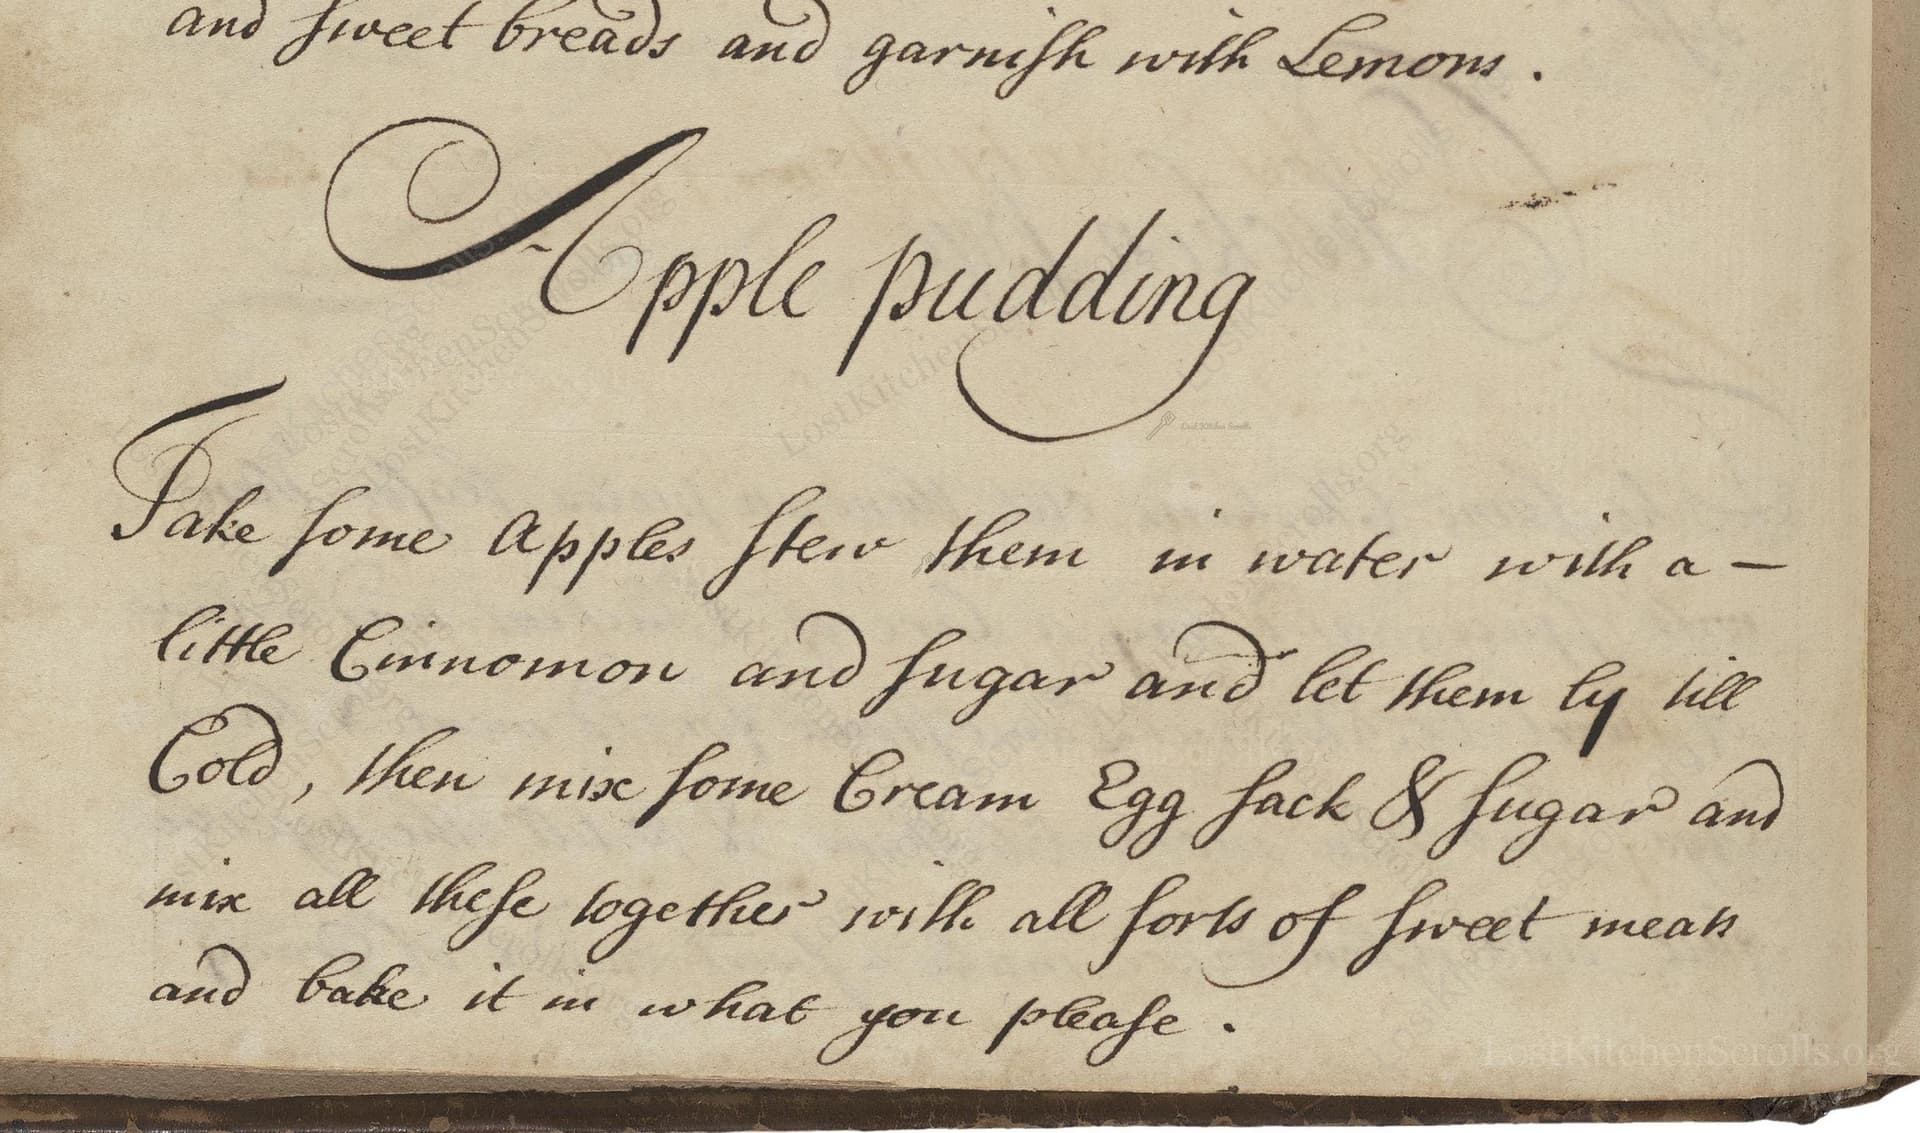 and ſweet breads and garniſh with Lemons .
Apple pudding
Take ſome Apples ſtew them in water with a –
little Cinnomon and ſugar and let them ly till
Cold , then mix ſome Cream Egg ſack & ſugar and
mix all theſe together with all ſorts of ſweet meats
and bake it in what you pleaſe .
LostKitchenScrolls.org